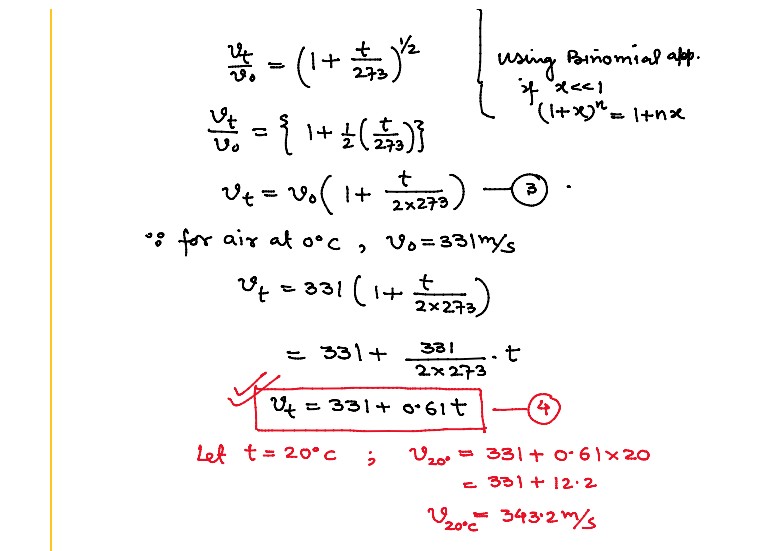 v_t/v_0 = (1 + t/273)^1/2
using Binomial app.
if x<<1
(1+x)^n = 1+nx
v_t/v_0 = { 1 + 1/2 (t/273)}
v_t = v_0 ( 1 + t/2×273 ) — 3 .
∵ for air at 0°C , v_0 = 331 m/s
v_t = 331 ( 1 + t/2×273 )
= 331 + 331/2×273 . t
v_t = 331 + 0.61 t — 4
Let t = 20°C ; v_20° = 331 + 0.61×20
= 331 + 12.2
v_20°C = 343.2 m/s